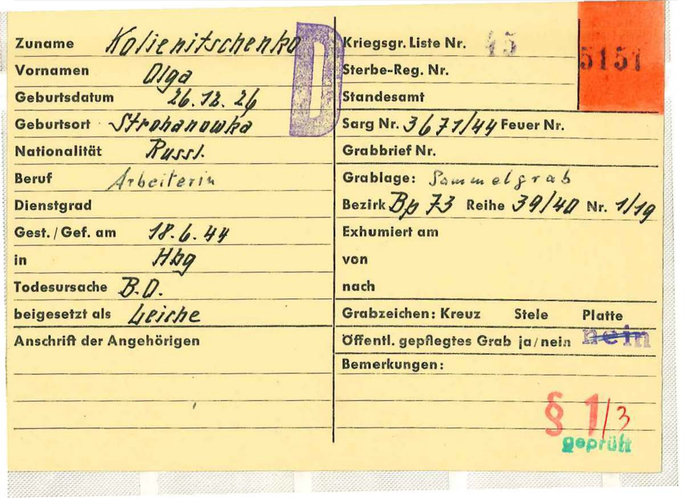 Zuname Kolienitschenko
Vornamen Olga
Geburtsdatum 26.12.26
Geburtsort Strohanowka
Nationalität Russl.
Beruf Arbeiterin
Dienstgrad
Gest./Gef. am 18.6.44
in Hbg
Todesursache B.O.
beigesetzt als Leiche
Anschrift der Angehörigen
D
Kriegsgr. Liste Nr. 45
5151
Sterbe-Reg. Nr.
Standesamt
Sarg Nr. 3671/44 Feuer Nr.
Grabbrief Nr.
Grablage: Sammelgrab
Bezirk Bp 73 Reihe 39/40 Nr. 1/19
Exhumiert am
von
nach
Grabzeichen: Kreuz Stele Platte
Öffentl. gepflegtes Grab ja/nein nein
Bemerkungen:
§ 1/3
geprüft